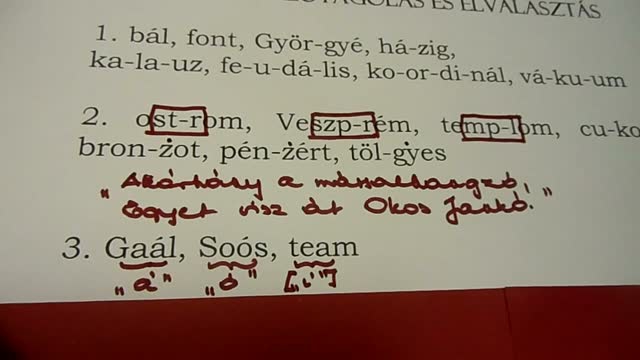 TAGOLÁS ÉS ELVÁLASZTÁS
1. bál, font, Györ-gyé, há-zig,
ka-la-uz, fe-u-dá-lis, ko-or-di-nál, vá-ku-um
2. ost-rom, Veszp-rém, temp-lom, cu-ko
bron-zot, pén-zért, töl-gyes
„Akárhány a mássalhangzó,
Egyet visz át Okos Jankó."
3. Gaál, Soós, team
„á" „ó" [„i"]